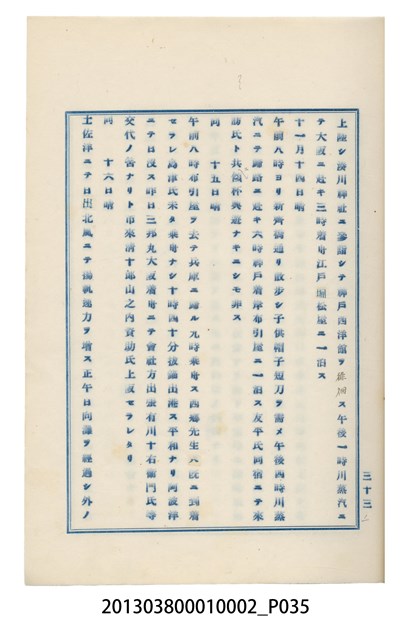 上陸シ湊川神社ニ參詣シテ神戸西洋舘ヲ遊囬ス午後一時川蒸汽ニ
テ大坂ニ赴キ三時着舟江戸堀松屋ニ一泊ス
十一月十四日晴
午前八時ヨリ新齊橋通リ散歩シ子供帽子短刀ヲ需メ午後四時川蒸
汽ニテ歸路ニ赴キ六時神戸着津布引屋ニ一泊ス友平氏同宿ニテ來
訪氏ト共傾杯興遊ナキニシモ非ス
同 十五日晴
午前八時布引屋ヲ去テ兵庫ニ歸ル九時乗舟ス西郷先生八浣ニ到着
セラレ島津氏未タ乗舟ナシ十時四十分拔錨出港ス平和ナリ阿波洋
ニテ日没ス昨日三邦丸大坂着舟ニテ會社方出張有川十右衛門氏等
交代ノ告ナリト市來淸十郎山之内資訪氏上坂セラレタリ
同 十六日晴
土佐洋ニテ日出北風ニテ揚帆速力ヲ増ス正午日向灘ヲ經過シ外ノ
三十三
201303800010002_P035